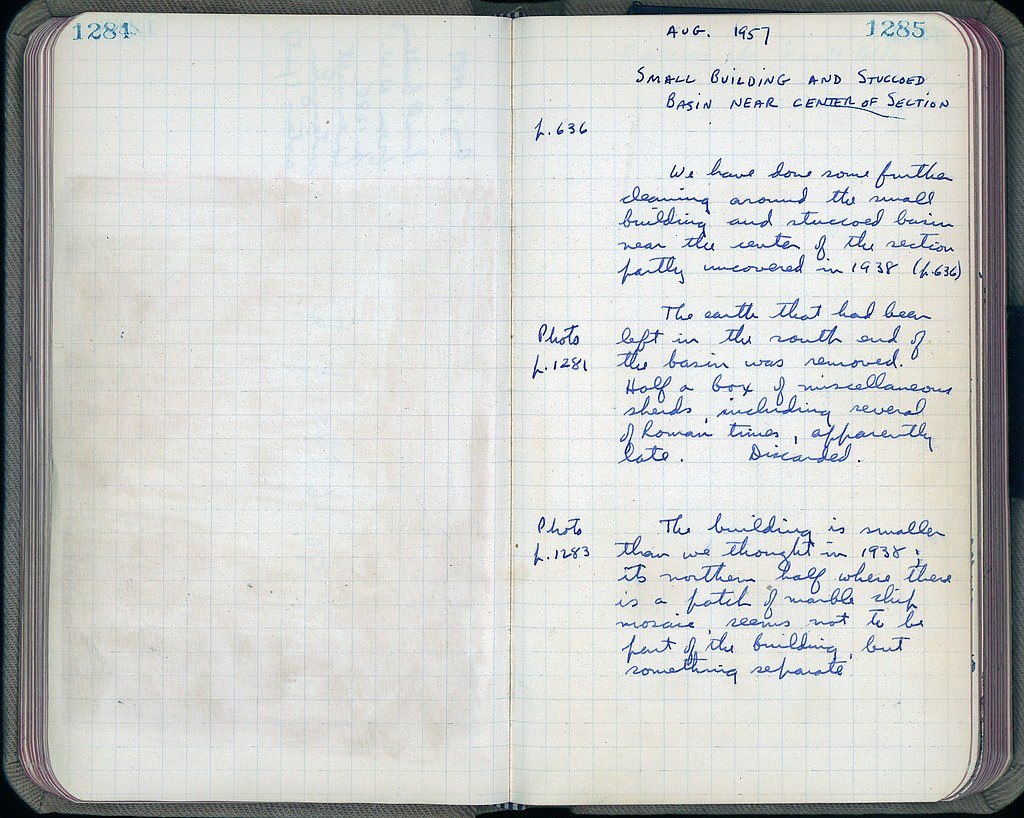 1284
AUG. 1957
1285
SMALL BUILDING AND STUCCOED
BASIN NEAR CENTER OF SECTION
p. 636
We have done some further
cleaning around the small
building and stuccoed basin
near the center of the section
partly uncovered in 1938 (p. 636)
The earth that had been
Photo
left in the south end of
p. 1281
the basin was removed.
Half a box of miscellaneous
sherds, including several
of Roman times, apparently
late. Discarded.
Photo
The building is smaller
p. 1283
than we thought in 1938;
its northern half where there
is a patch of marble chip
mosaic, seems not to be
part of the building, but
something separate